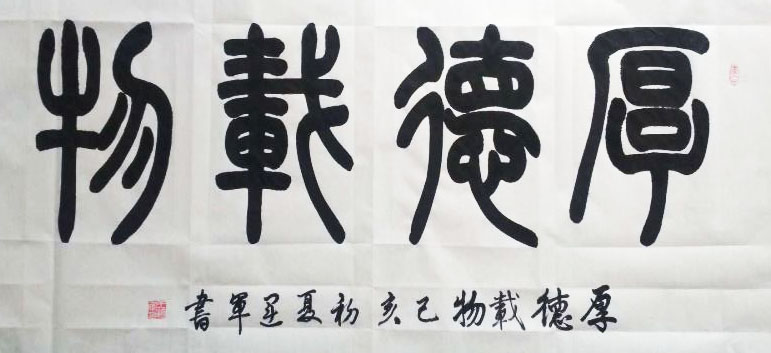 厚德載物
厚德載物己亥初夏軍書